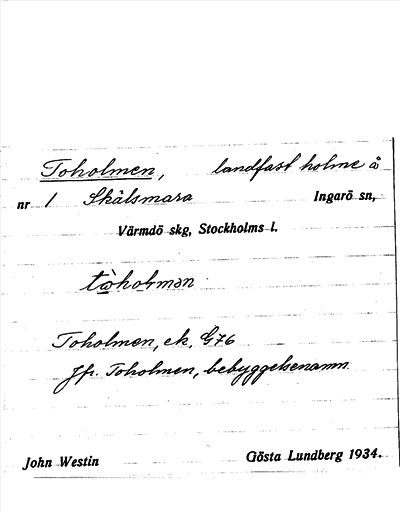 Toholmen, landfast holme å
nr 1 Skälsmara Ingarö sn,
Värmdö skg, Stockholms l.
Toholmen, ek. G76
Jfr. Toholmen, bebyggelsenamn.
John Westin Gösta Lundberg 1934.